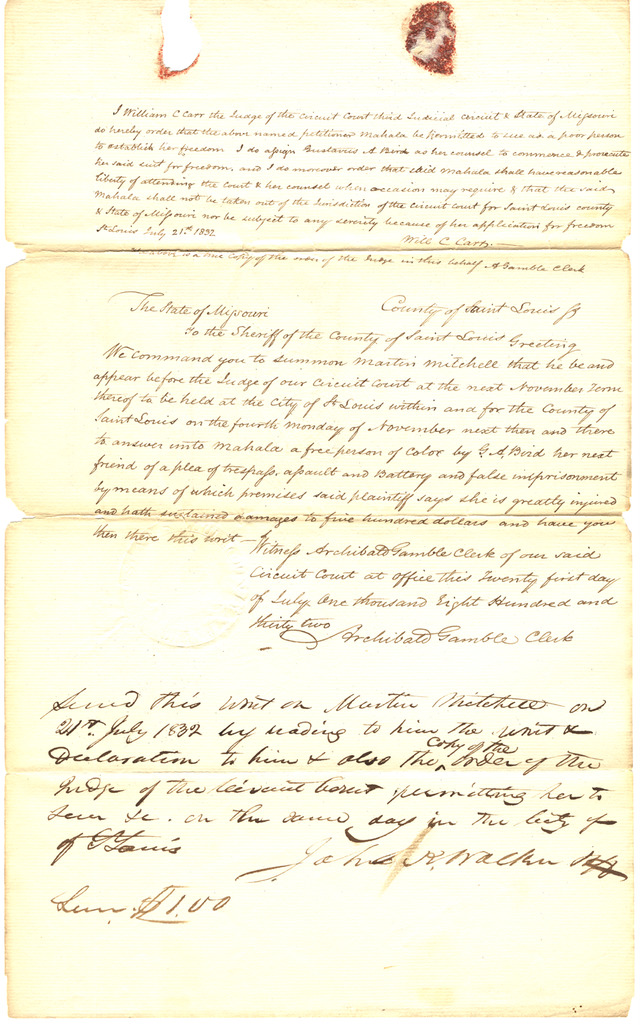 I William C Carr the Judge of the Circuit Court third Judicial circuit & State of Missouri
do hereby order that the above named petitioner Mahala be permitted to sue as a poor person
to establish her freedom I do assign Gustavus A Bird as her counsel to commence & prosecute
her said suit for freedom, and I do moreover order that said Mahala shall have reasonable
liberty of attending the Court & her counsel when occasion may require & that the said
Mahala shall not be taken out of the Jurisdiction of the circuit court for Saint Louis county
& State of Missouri nor be subject to any severity because of her application for freedom
St Louis July 21st 1832
Will C Carr.
is a true copy of the order of the Judge in this behalf A Gamble Clerk
The State of Missouri County of Saint Louis
To the Sheriff of the County of Saint Louis Greeting
We command you to summon Martin Mitchell that he be and
appear before the Judge of our Circuit Court at the next November Term
thereof to be held at the City of St Louis within and for the County of
Saint Louis on the fourth Monday of November next then and there
to answer unto Mahala a free person of color by G. A. Bird her next
friend of a plea of trespass, assault and Battery and false imprisonment
by means of which premises said plaintiff says she is greatly injured
and hath sustained damages to five hundred dollars and have you
then there this writ —
Witness Archibald Gamble Clerk of our said
Circuit Court at office this Twenty first day
of July One thousand Eight Hundred and
thirty two
Archibald Gamble Clerk
Served this writ on Martin Mitchell on
21st. July 1832 by reading to him the writ &
Declaration to him & also the copy of the order of the
Judge of the Circuit Court permitting her to
Sue &c. on the same day in the City of
of St Louis
John K. Walker Shff
Serv. $1.00